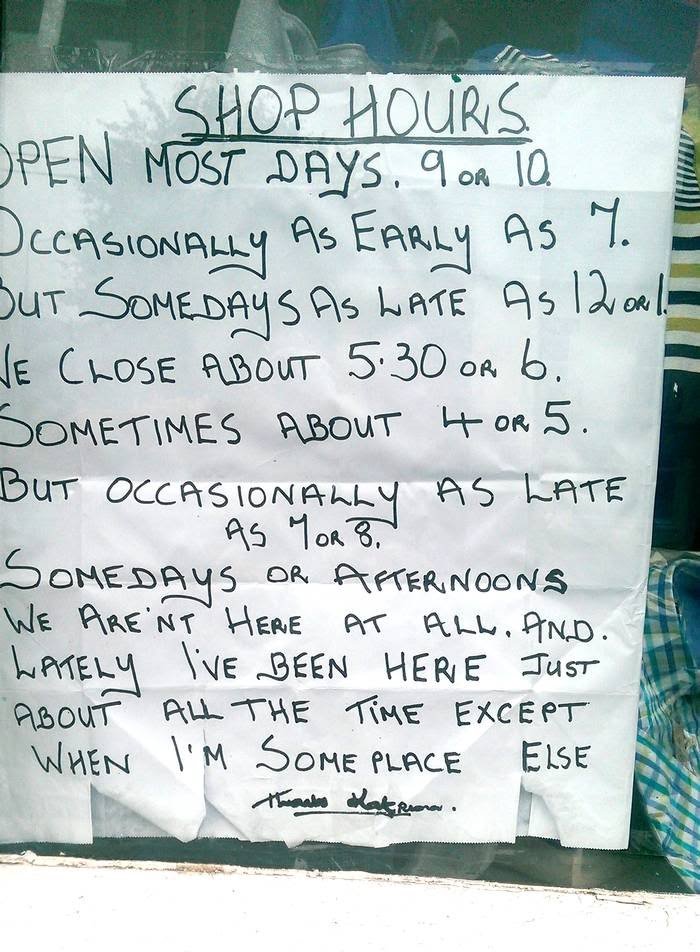 SHOP HOURS.
OPEN MOST DAYS. 9 OR 10.
OCCASIONALLY AS EARLY AS 7.
BUT SOMEDAYS AS LATE AS 12 OR 1.
WE CLOSE ABOUT 5.30 OR 6.
SOMETIMES ABOUT 4 OR 5.
BUT OCCASIONALLY AS LATE
AS 7 OR 8.
SOMEDAYS OR AFTERNOONS
WE ARE'NT HERE AT ALL. AND.
LATELY I'VE BEEN HERE JUST
ABOUT ALL THE TIME EXCEPT
WHEN I'M SOME PLACE ELSE
Thanks